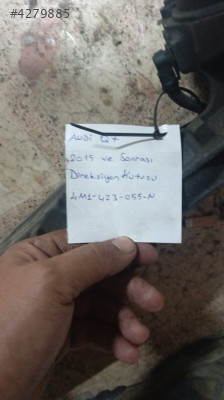 #4279885
AUDI Q7
2015 ve Sonrası
Direksiyon Kutusu
4M1-423-055-N